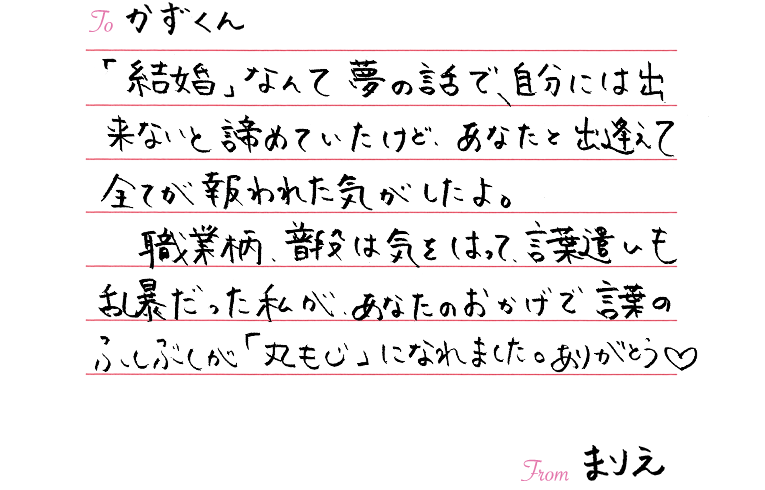 To かずくん
「結婚」なんて夢の話で、自分には出
来ないと諦めていたけど、あなたと出逢えて
全てが報われた気がしたよ。
職業柄、普段は気をはって、言葉遣いも
乱暴だった私が、あなたのおかげで言葉の
ふしぶしが「丸もじ」になれました。ありがとう♡
From まりえ